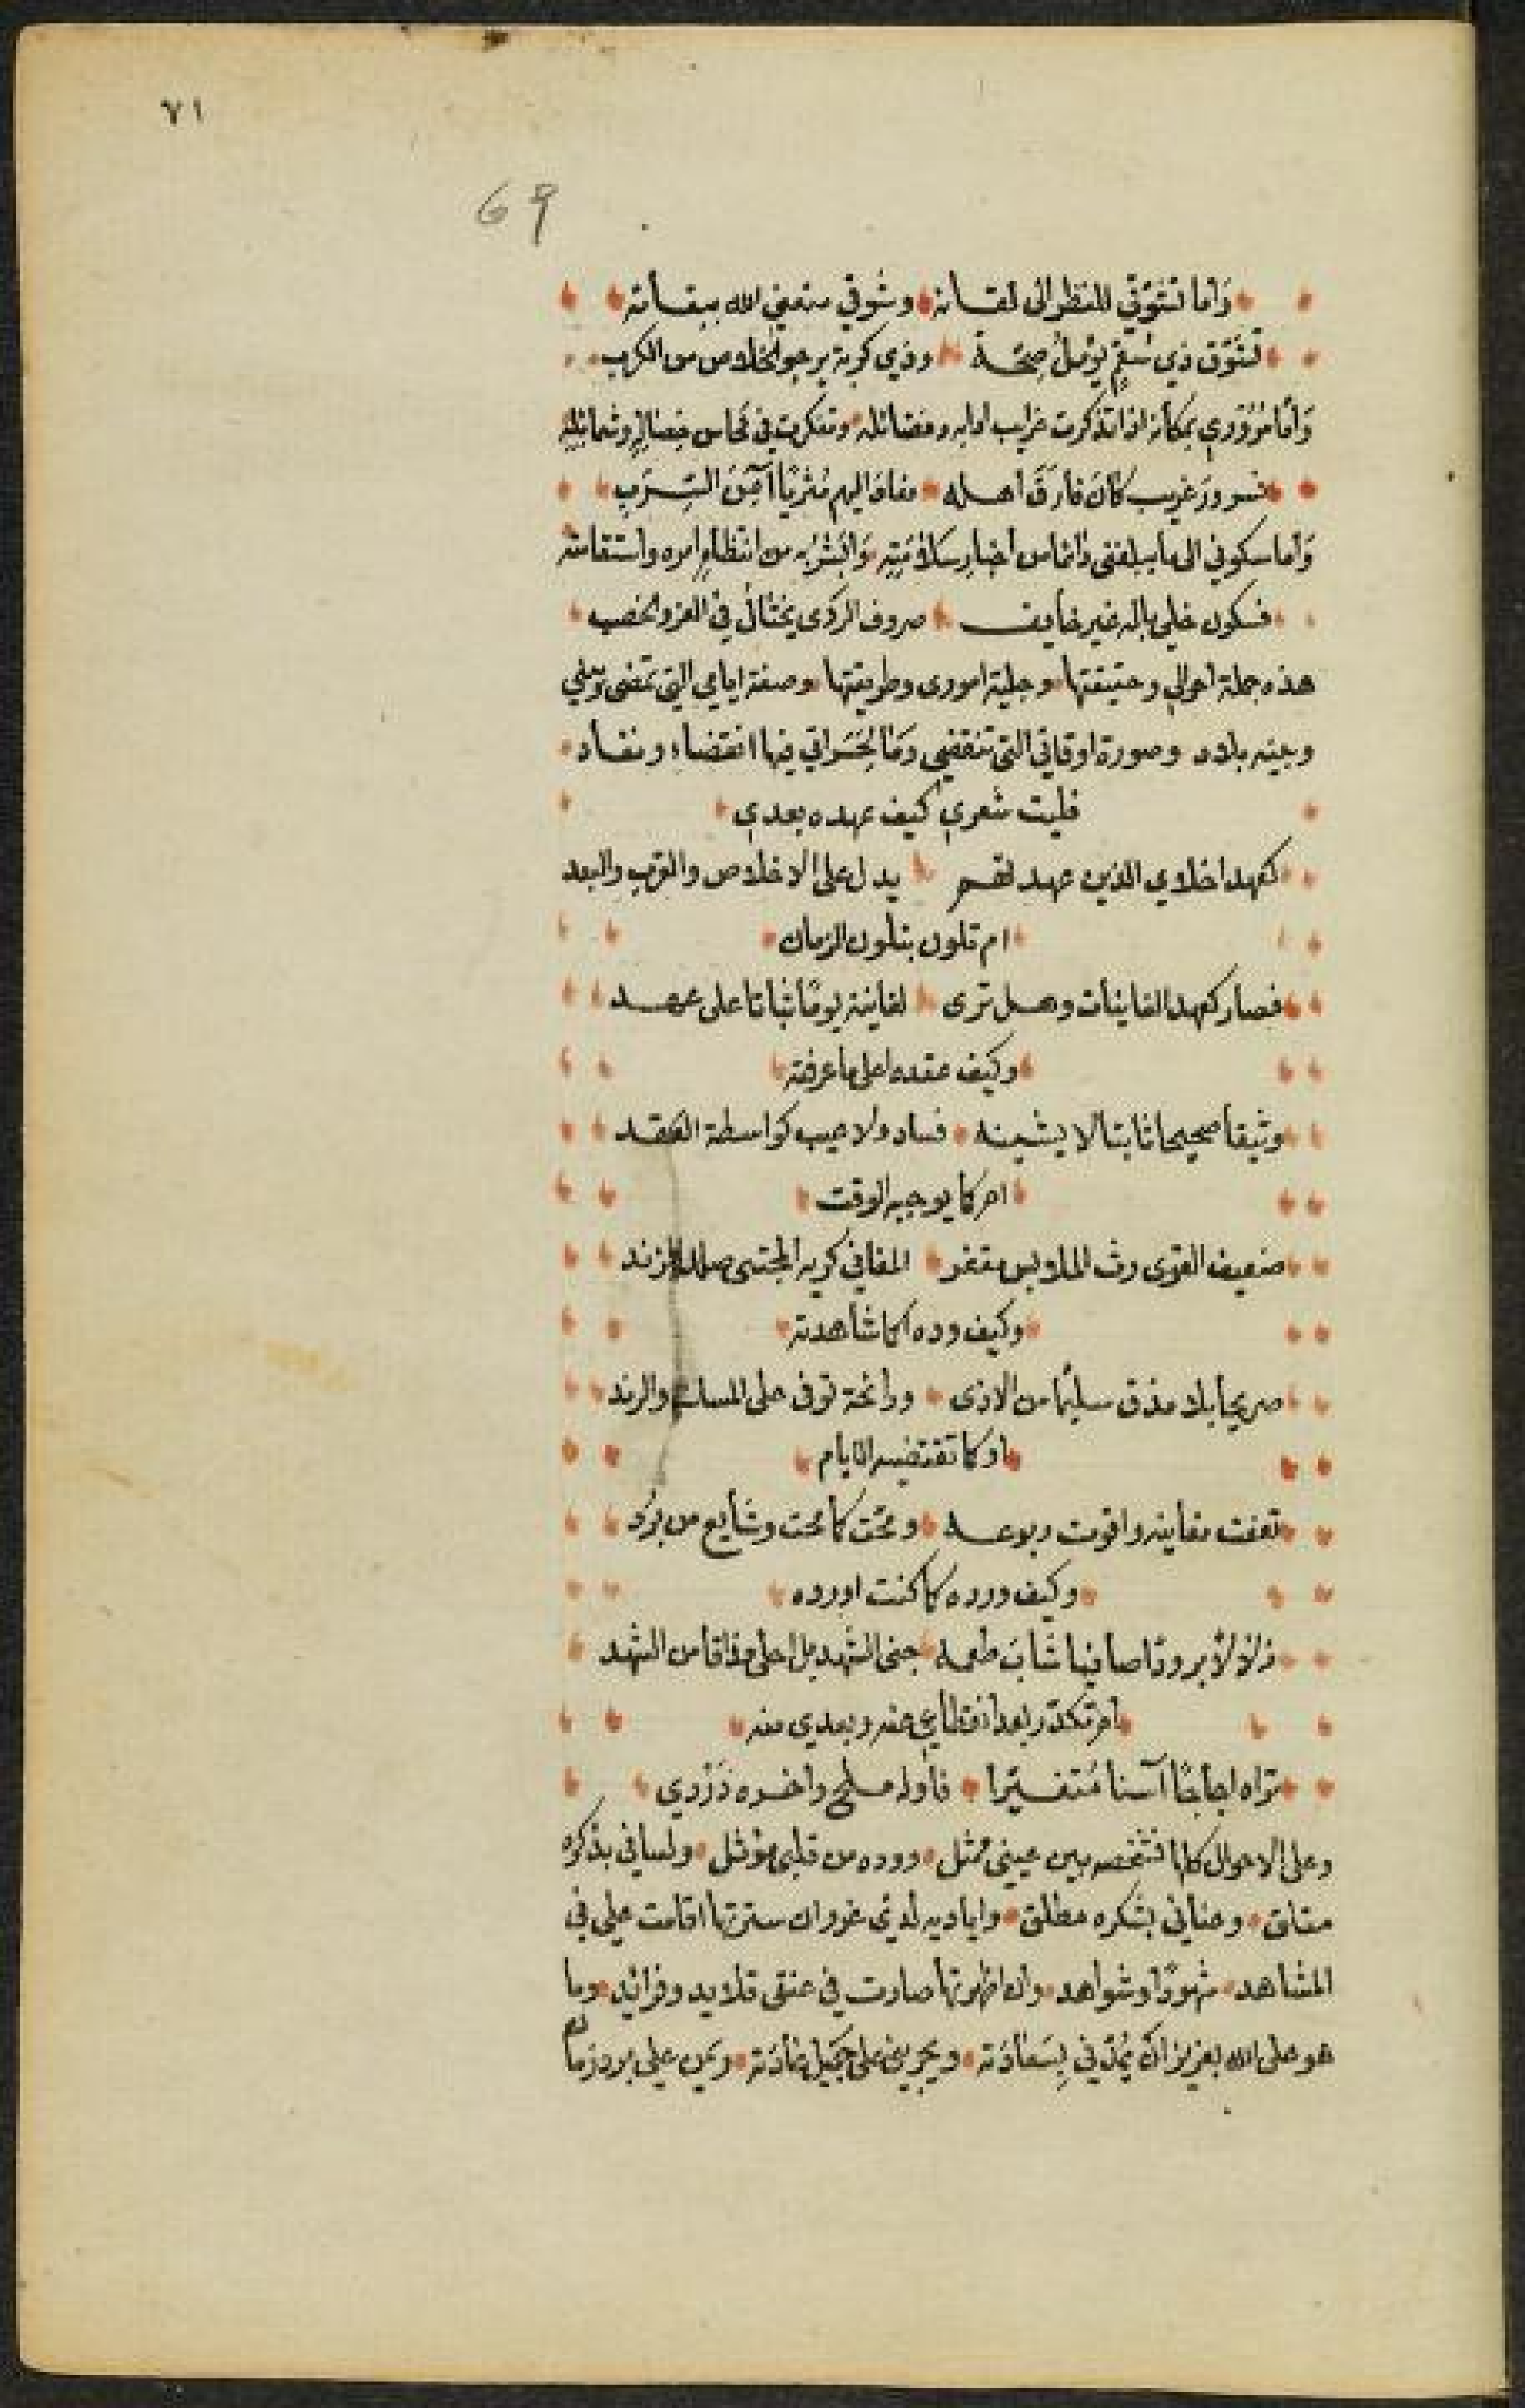 ٧١
69
وَأما تشوّقي للنظر الى لقائه وشوقي متعني الله ببقائه
تشَوّق ذي سُقمٍ يؤمِلُ صِحّة وذي كربة يرجو الخلاص من الكرب
وَأمّا سُرُوري بمكانه اذا تذكرت غرايب ادابه وفضائله وتفكرت في محاسن خصالِهِ وشمائِلِهِ
سرورَ غريب كانَ فارَقَ أهله فعاد اليهم مُثريًا آمِنَ السِّربِ
وَأما سكوني الى ما يبلغني دائما من أخبارِ سلامَتِهِ وَابشرُ به من انتظامِ امره واستقامته
فسكون خلي باله غير خايف صروف الردى يختال في العز والخصب
هذه جملة احوالي وحقيقتها وجلية اموري وطريقتها وصفة ايامي التي تمضي وهي
وصورة اوقاتي التي تنقضي وَمَا لِحَسَراتي فيها انقضاء ونفاد
فليت شعري كيف عهده بعدي
كعهد اخلاي الذين عهدتهم يدل على الاخلاص والقرب والبعد
ام تلون بتلون الزمان
فصار كعهد الغانيات وهل ترى لغانية يومًا ثباتا على عهد
وكيف عقده اعلى ما عرفته
وثيقا صحيحا ثابتا لا يشينه فساد ولا عيب كواسطة العقد
ام كما يوجبه الوقت
ضعيف القوى رث الملابس مقفر المغاني كريه المجتنى صلد الزند
وكيف وده اكما شاهدته
صريحا بلا مذق سليمًا من الاذى ورائحة توفى على المسك والرند
او كما تقتضيه الايام
تعفت مغانيه واقوت ربوعه ومحّت كما محت وشايع من بُرد
وكيف ورده كما كنت اورده
زلالا برودًا صافيا شاب طعمه جنى الشهد بل احلى مذاقا من الشهد
ام تكدّر بعد انقطاعي عنه وبعدي منه
تراه اجاجًا آسنا مُتغيّرا فاوله ملح واخره دُرْدي
وعلى الاحوال كلها فشخصه بين عيني ممثل ووده من قلبي مؤثل ولساني بذكره
منطلق وعناني بشكره مطلق واياديه لديّ غرر ان سترتها اقامت علي في
المشاهد شهودًا وشواهد وان اظهرتها صارت في عنقي قلايد وفرائد وما
هو على الله بعزيز ان يُمدّني بِسَعادته ويجريني على جَميل عادَته ويمن علي برد زمان